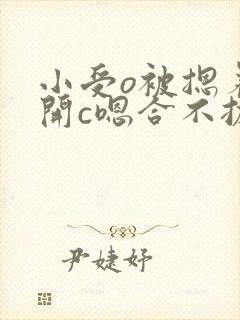 小受o被摁着
開c嗯合不拢
尹婕妤